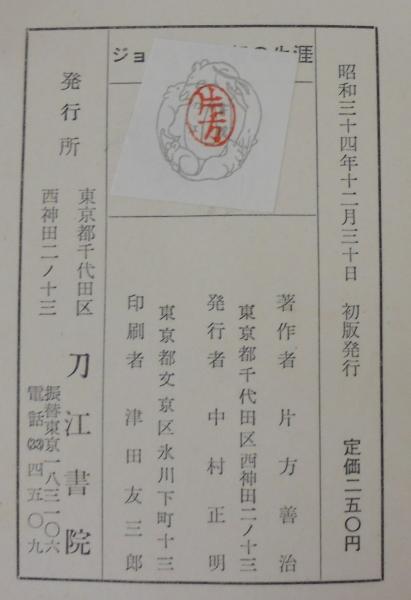 昭和三十四年十二月三十日 初版発行
定価二五〇円
ジョ
の生涯
片方
著作者 片方善治
東京都千代田区西神田二ノ十三
発行者 中村正明
東京都文京区氷川下町十三
印刷者 津田友三郎
発行所
東京都千代田区
西神田二ノ十三
刀江書院
振替東京一八三一〇六
電話㉝四五〇九